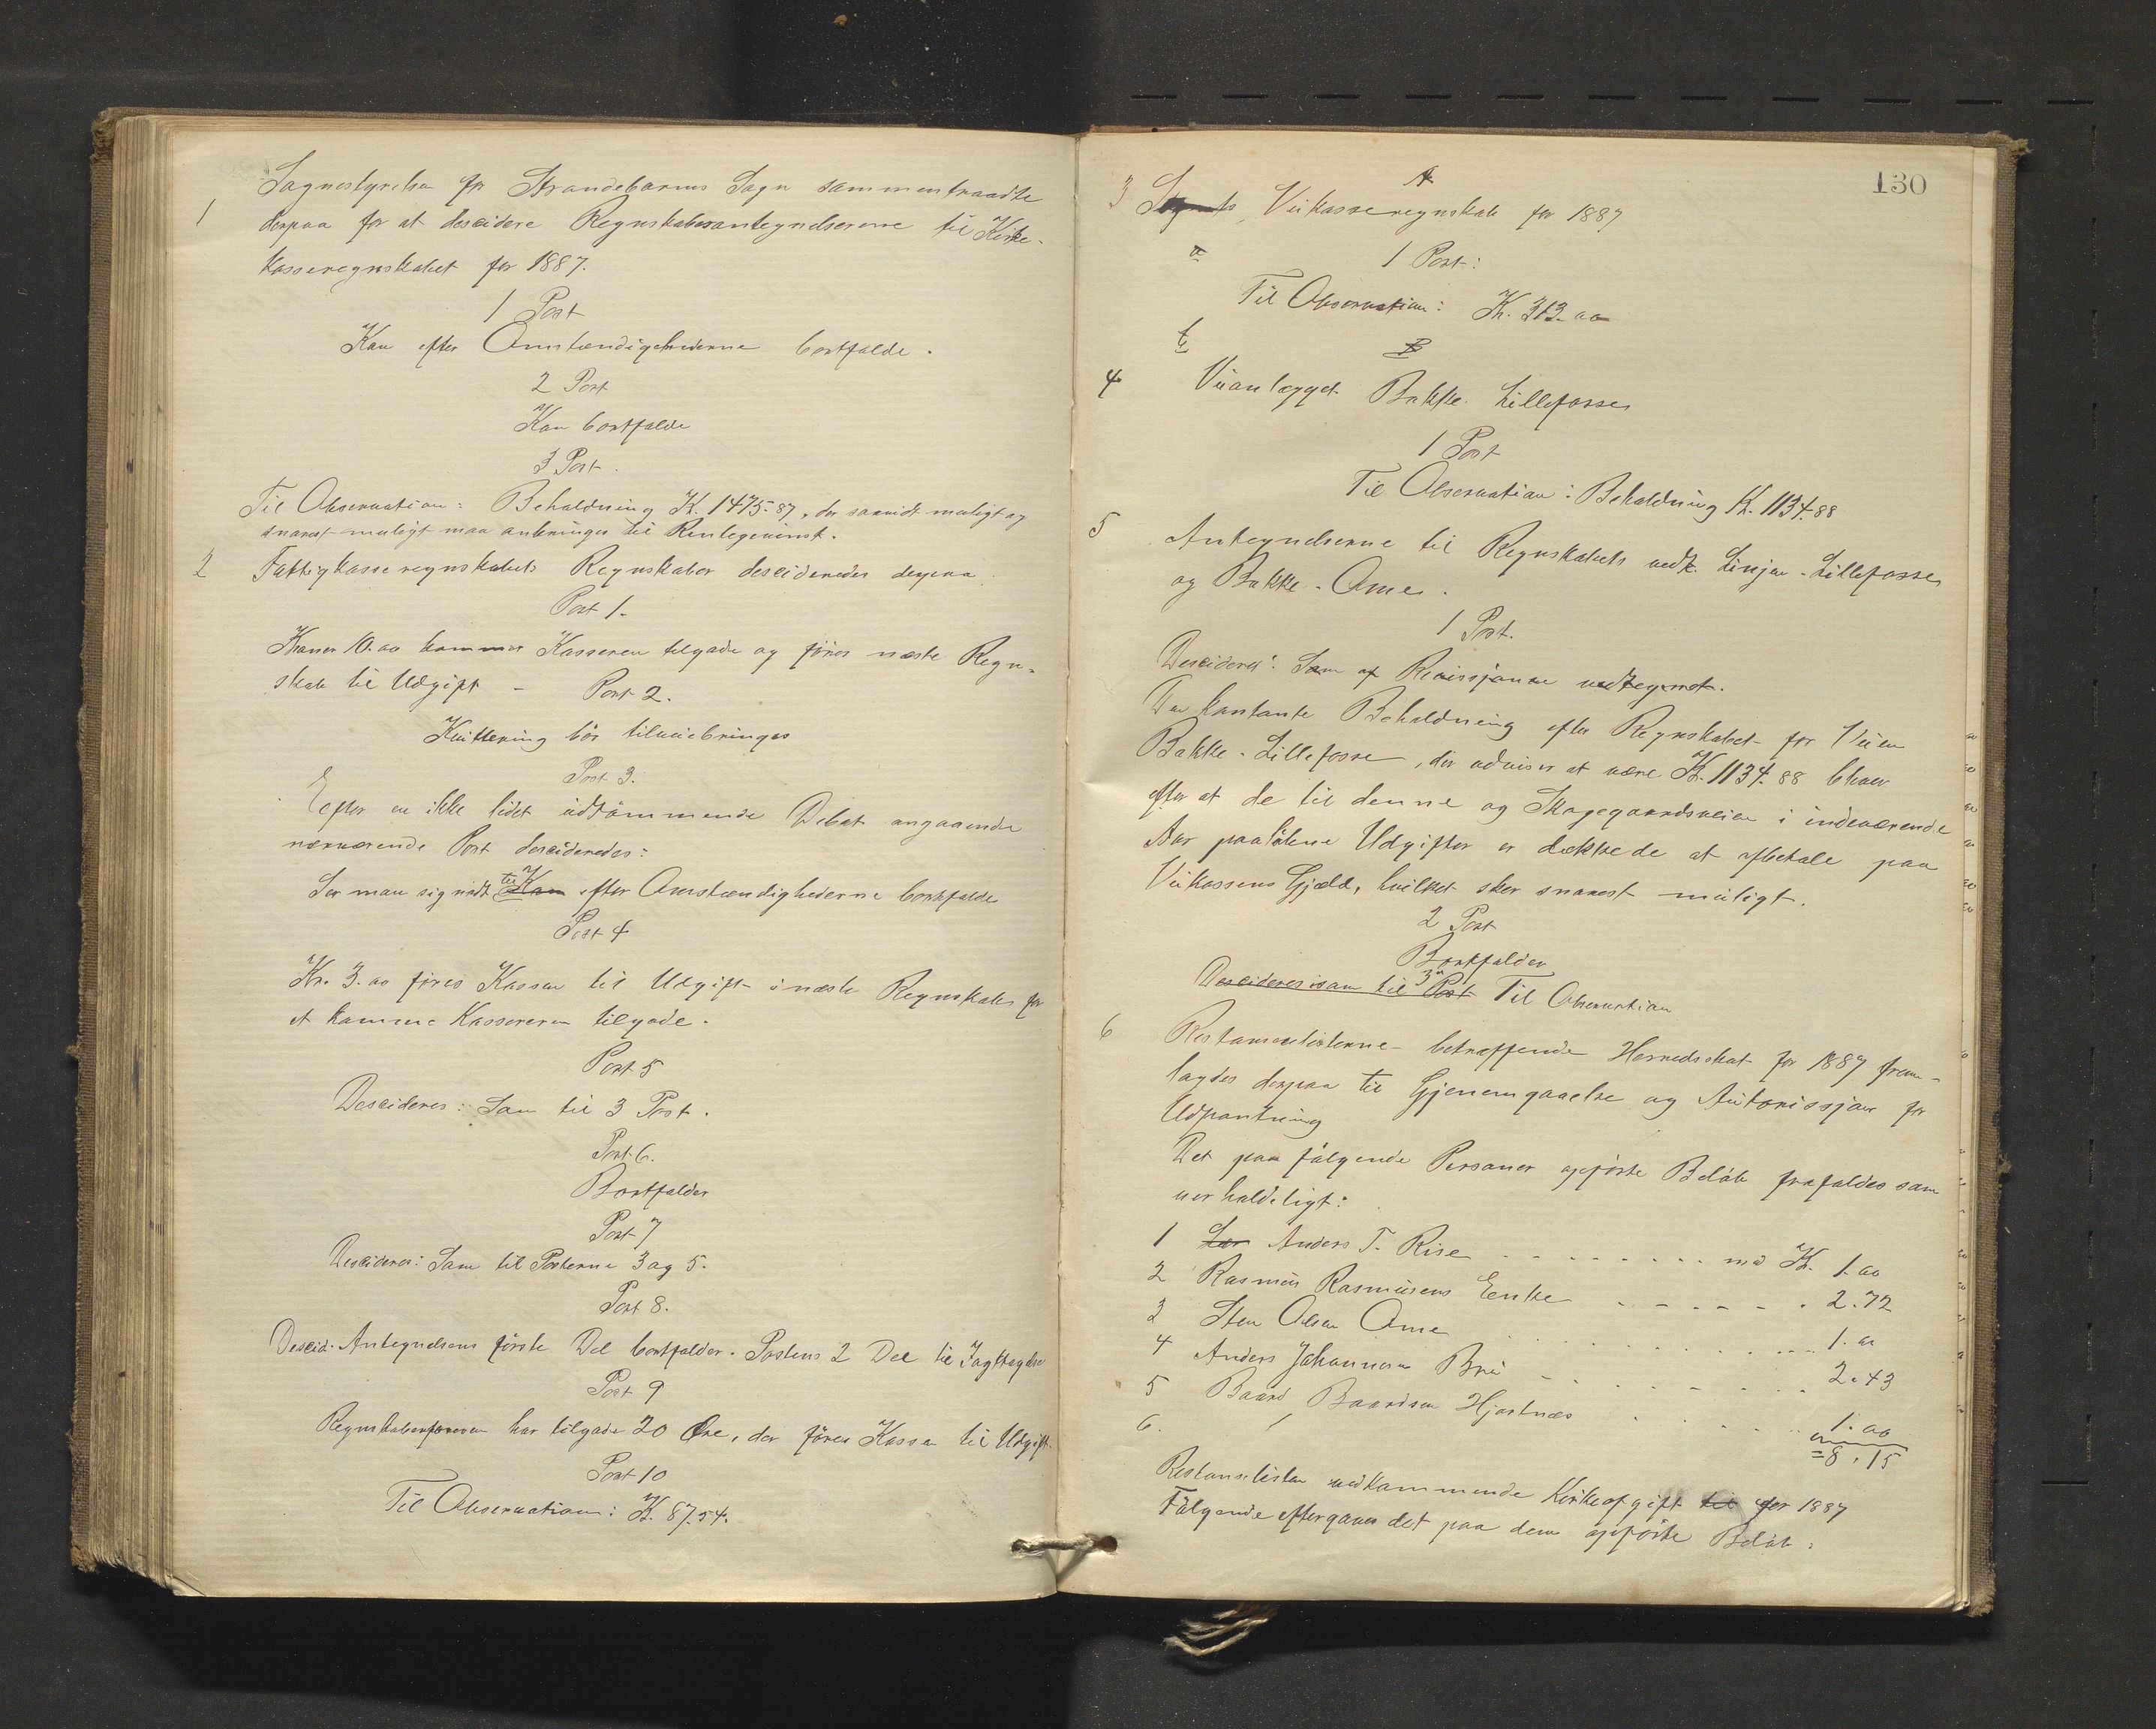 Sognestyrelsen for Strandebarms Sogn sammentraadte
1 derpaa for at descidere Regnskabsantegnelserne til Kirke-
kasseregnskabet for 1887.
1 Post
Kan efter Omstændighederne bortfalde.
2 Post
Kan bortfalde
3 Post.
Til Observation: Beholdning K. 1475.87, der saavidt muligt og
snarest muligt maa anbringes til Rentegevinst.
2 Fattigkasseregnskabets Regnskaber descideredes derpaa.
Post 1.
Kroner 10.00 kommer Kasseren tilgode og føres næste Regn-
skab til Udgift -
Post 2.
Kvittering bør tilveiebringes
Post 3.
Efter en ikke lidet udtømmende Debat angaaende
nærværende Post desideredes:
Ser man sig nødt til Kan efter Omstændighederne bortfalde
Post 4
Kr. 3.00 føres Kassen til Udgift i næste Regnskab for
at komme Kassereren tilgode.
Post 5
Descideres: Som til 3 Post.
Post 6.
Bortfalder
Post 7
Descideres: Som til Posterne 3 og 5.
Post 8.
Descid. Antegnelsens første Del bortfalder. Postens 2 Del til Iagttagelse
Post 9
Regnskabsføreren har tilgode 20 Øre, der føres Kassen til Udgift.
Post 10
Til Observation: K. 87.54.
130
A
3 Veikasseregnskab for 1887
a
1 Post:
Til Observation: Kr. 313.00
b
B
4 Veianlægget Bakke-Lillefosse
1 Post
Til Observation: Beholdning K. 1134.88
5 Antegnelserne til Regnskabets vedk. Linjen-Lillefosse
og Bakke-Ome.
1 Post.
Descideres: Som af Revissjonen vedtegnet.
Den kontante Beholdning efter Regnskabet for Veien
Bakke-Lillefosse, der udvises at være K. 1134.88 bliver
efter at de til denne og Skogegaardsveien i indeværende
Aar paaløbne Udgifter er dækkede at afbetale paa
Veikassens Gjæld, hvilket sker snarest muligt.
2 Post
Bortfalder
Descideres som til 3 Post Til Observation
6 Restanselisterne betræffende Herredsskat for 1887 frem-
lagdes derpaa til Gjenemgaaelse og Autorissjon for
Udpantning
Det paa følgende Personer opførte Beløb frafaldes som
uerholdeligt:
1 Lar Anders T. Rise . . . . . . . . med K. 1.00
2 Rasmus Rasmusens Enke . . . . . . . 2.72
3 Sten Olsen Ome . . . . . . . 1.00
4 Anders Johannesen Bru . . . . . . . 2.43
5 Baard Baardsen Hjartnæs . . . . . . 1.00
6.
= 8.15
Restanselisten vedkommende Kirkeafgift til for 1887
Følgende eftergaves det paa dem opførte Beløb: